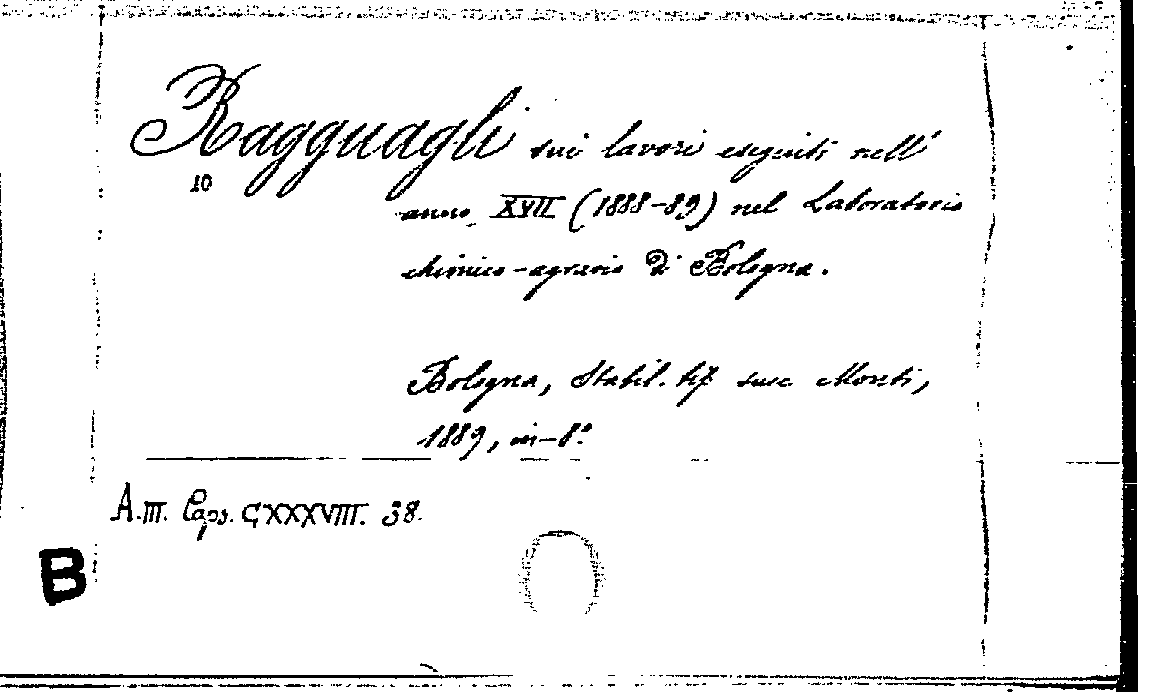 Ragguagli sui lavori eseguiti nell'
10
anno XVII (1888-89) nel Laboratorio
chimico-agrario di Bologna.
Bologna, Stabil. tip succ Monti,
1889, in-8.°
A.III. Caps. CXXXVIII. 38.
B